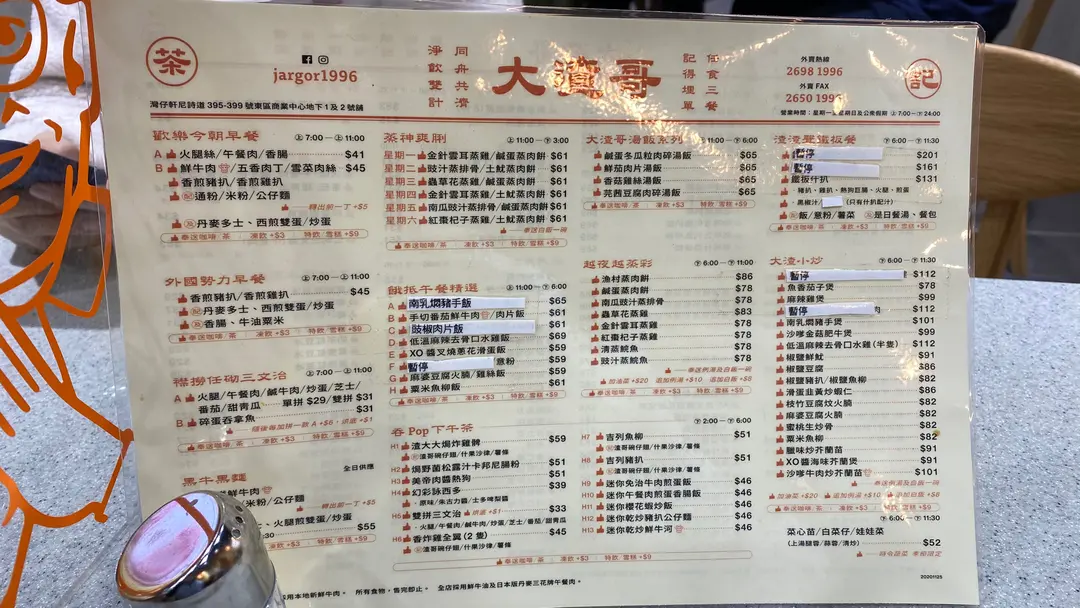 茶
jargor1996
淨飲雙計
同舟共濟
大渣哥
記得埋單
任食三餐
外賣熱線
2698 1996
外賣 FAX
記
灣仔軒尼詩道 395-399 號東區商業中心地下 1 及 2 號舖
營業時間：星期一至星期日及公眾假期 ㊤ 7:00-㊦ 24:00
歡樂今朝早餐 ㊤ 7:00 — ㊤ 11:00
A 火腿絲/午餐肉/香腸 $41
B 鮮牛肉/五香肉丁/雪菜肉絲 $45
香煎豬扒/香煎雞扒
通粉/米粉/公仔麵
轉出前一丁 +$5
丹麥多士、西煎雙蛋/炒蛋
奉送咖啡/茶 · 凍飲 +$3 特飲/雪糕 +$9
外國勢力早餐 ㊤ 7:00 — ㊤ 11:00
香煎豬扒/香煎雞扒 $45
丹麥多士、西煎雙蛋/炒蛋
香腸、牛油粟米
奉送咖啡/茶 · 凍飲 +$3 特飲/雪糕 +$9
襟撈任砌三文治 ㊤ 7:00 — ㊤ 11:00
A 火腿/午餐肉/鹹牛肉/炒蛋/芝士/
番茄/甜青瓜 單拼 $29/雙拼 $31
B 碎蛋吞拿魚 $31
隨後每加拼一款 A +$6 · 烘底 +$1
奉送咖啡/茶 · 凍飲 +$3 特飲/雪糕 +$9
黑牛黑麵 全日供應
鮮牛肉
米粉/公仔麵
轉出前一丁 +$5
火腿煎雙蛋/炒蛋 $55
凍飲 +$3 特飲/雪糕 +$9
茶神爽喇 ㊤ 11:00 — ㊦ 3:00
星期一 金針雲耳蒸雞/鹹蛋蒸肉餅 $61
星期二 豉汁蒸排骨/土魷蒸肉餅 $61
星期三 蟲草花蒸雞/鹹蛋蒸肉餅 $61
星期四 金針雲耳蒸雞/土魷蒸肉餅 $61
星期五 南瓜豉汁蒸排骨/鹹蛋蒸肉餅 $61
星期六 紅棗杞子蒸雞/土魷蒸肉餅 $61
奉送白飯一碗
奉送咖啡/茶 · 凍飲 +$3 特飲/雪糕 +$9
餓抵午餐精選 ㊤ 11:00 — ㊦ 6:00
A 南乳燜豬手飯 $65
B 手切番茄鮮牛肉/肉片飯 $61
C 豉椒肉片飯 $61
D 低溫麻辣去骨口水雞飯 $69
E XO 醬叉燒蔥花滑蛋飯 $59
F 暫停 意粉 $59
G 麻婆豆腐火腩/雞絲飯 $59
H 粟米魚柳飯 $61
奉送咖啡/茶 · 凍飲 +$3 特飲/雪糕 +$9
吞 Pop 下午茶 ㊦ 2:00 — ㊦ 6:00
H1 渣大大焗炸雞髀 $59
渣哥碗仔翅/什果沙律/薯條
H2 焗野菌松露汁卡邦尼腸粉 $51
H3 美帝肉醬熱狗 $51
H4 幻彩詠西多 $39
· 原味/朱古力醬/士多啤梨醬
H5 雙拼三文治 烘底 +$1 $33
· 火腿/午餐肉/鹹牛肉/炒蛋/芝士/番茄/甜青瓜
H6 香炸雞全翼 (2 隻) $45
渣哥碗仔翅/什果沙律/薯條
H7 吉列魚柳 $51
渣哥碗仔翅/什果沙律/薯條
H8 吉列豬扒 $51
渣哥碗仔翅/什果沙律/薯條
H9 迷你免治牛肉煎蛋飯 $46
H10 迷你午餐肉煎蛋香腸飯 $46
H11 迷你櫻花蝦炒飯 $46
H12 迷你乾炒豬扒公仔麵 $46
H13 迷你乾炒鮮牛河 $46
奉送咖啡/茶 · 凍飲 +$3 特飲/雪糕 +$9
大渣哥湯飯系列 ㊤ 11:00 — ㊦ 6:00
鹹蛋冬瓜粒肉碎湯飯 $65
鮮茄肉片湯飯 $65
香菇雞絲湯飯 $65
芫茜豆腐肉碎湯飯 $65
奉送咖啡/茶 · 凍飲 +$3 特飲/雪糕 +$9
越夜越蒸彩 ㊦ 6:00 — ㊦ 11:00
漁村蒸肉餅 $86
鹹蛋蒸肉餅 $78
南瓜豉汁蒸排骨 $78
蟲草花蒸雞 $83
金針雲耳蒸雞 $78
紅棗杞子蒸雞 $78
清蒸鯇魚 $78
豉汁蒸鯇魚 $78
奉送例湯及白飯一碗
加油菜 +$20 追加例湯 +$10 追加白飯 +$8
奉送咖啡/茶 · 凍飲 +$3 特飲/雪糕 +$9
渣渣聲鐵板餐 ㊤ 11:00 — ㊦ 11:30
暫停 $201
暫停 $161
鐵板什扒 $131
豬扒、雞扒、熱狗豆腸、火腿、煎蛋
黑椒汁/ (只有什扒配汁)
飯/意粉/薯菜 是日餐湯、餐包
奉送咖啡/茶 · 凍飲 +$3 特飲/雪糕 +$9
大渣小炒 ㊦ 6:00 — ㊦ 11:30
暫停 $112
魚香茄子煲 $78
麻辣雞煲 $99
暫停 肉 $112
南乳燜豬手煲 $101
沙嗲金菇肥牛煲 $99
低溫麻辣去骨口水雞 (半隻) $112
椒鹽鮮魷 $91
椒鹽豆腐 $86
椒鹽豬扒/椒鹽魚柳 $82
滑蛋韭黃炒蝦仁 $86
枝竹豆腐炆火腩 $82
麻婆豆腐火腩 $82
蜜桃生炒骨 $82
粟米魚柳 $82
臘味炒芥蘭苗 $91
XO 醬海味芥蘭煲 $91
沙嗲牛肉炒芥蘭苗 $101
奉送例湯及白飯一碗
加油菜 +$20 追加例湯 +$10 追加白飯 +$8
奉送咖啡/茶 · 凍飲 +$3 特飲/雪糕 +$9
㊦ 6:00 — ㊦ 11:30
菜心苗/白菜仔/娃娃菜
(上湯腿蓉/蒜蓉/清炒) $52
採用本地新鮮牛肉。 所有食物，售完即止。 全店採用鮮牛油及日本版丹麥三花牌午餐肉。
20201125